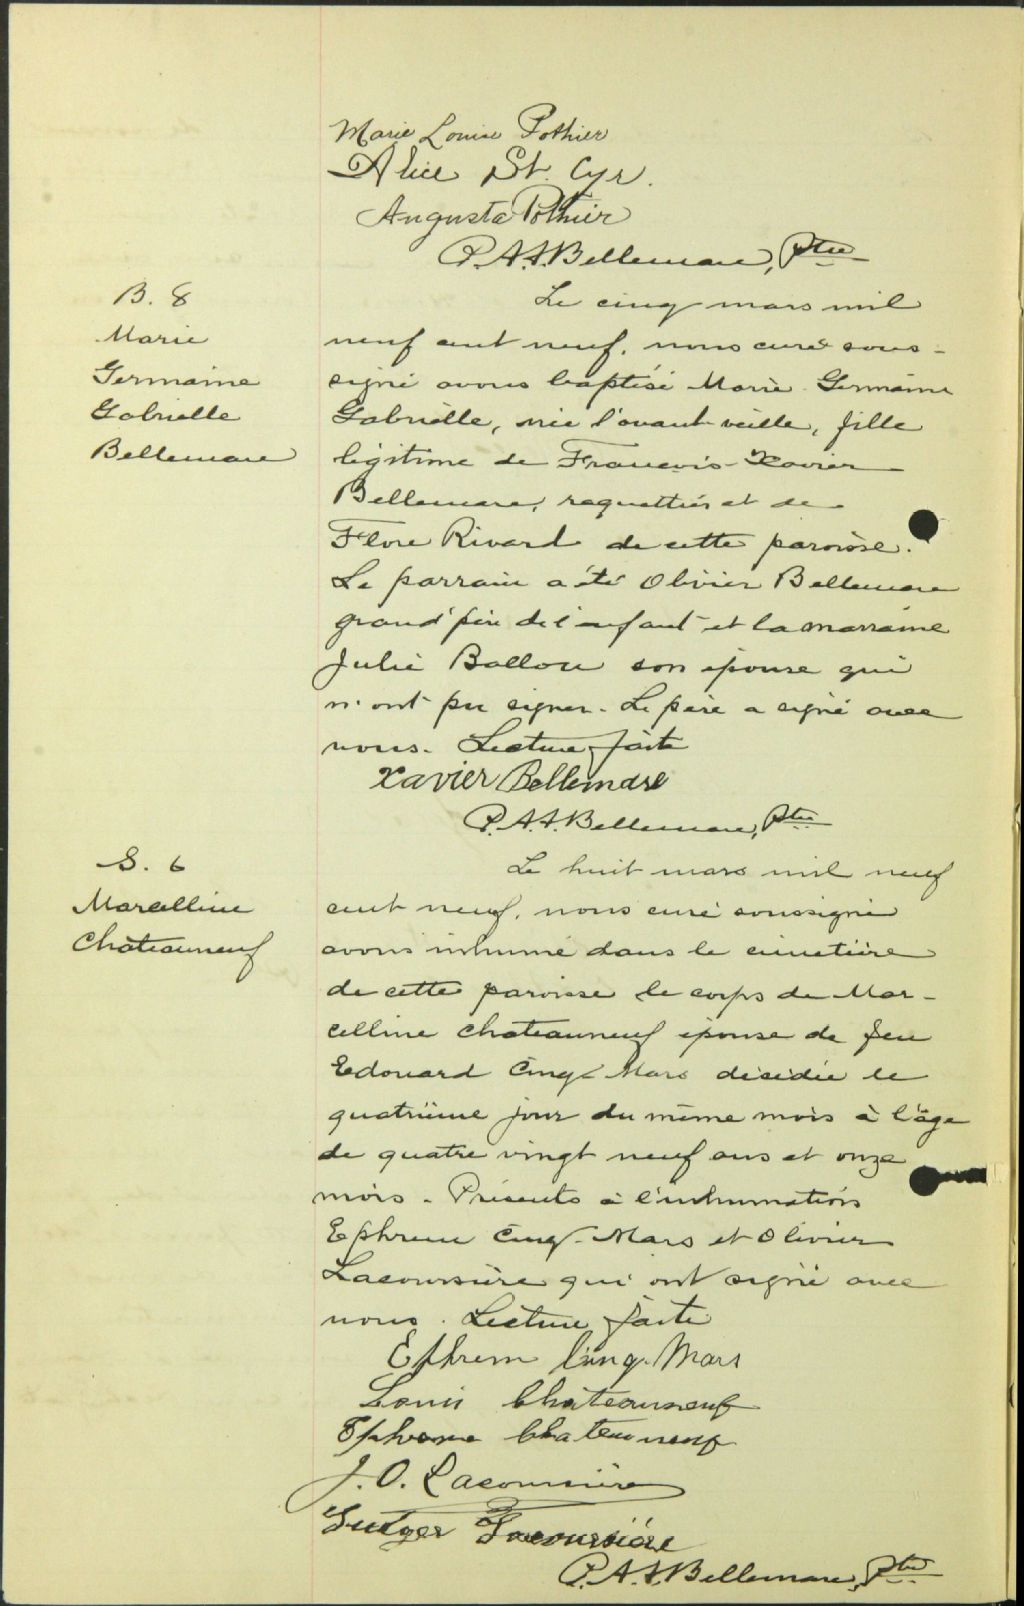 Marie Louise Pothier
Alice St. Cyr.
Augusta Pothier
P. A. A. Bellemare, Ptre
B. 8
Marie
Germaine
Gabrielle
Bellemare
Le cinq mars mil
neuf cent neuf, nous curé sous-
signé avons baptisé Marie Germaine
Gabrielle, née l'avant-veille, fille
légitime de François-Xavier
Bellemare, raquettier et de
Flore Rivard de cette paroisse.
Le parrain a été Olivier Bellemare
grand'père de l'enfant et la marraine
Julie Ballou son épouse qui
n'ont pu signer. Le père a signé avec
nous. Lecture faite
Xavier Bellemare
P. A. A. Bellemare, Ptre
S. 6
Marcelline
Châteauneuf
Le huit mars mil neuf
cent neuf, nous curé soussigné
avons inhumé dans le cimetière
de cette paroisse le corps de Mar-
celline Chateauneuf épouse de feu
Edouard Cinq-Mars décédée le
quatrième jour du même mois à l'âge
de quatre vingt neuf ans et onze
mois. Présents à l'inhumation
Ephrem Cinq-Mars et Olivier
Lacoursière qui ont signé avec
nous. Lecture faite
Ephrem Cinq-Mars
Louis Chateauneuf
Chateauneuf
J. O. Lacoursière
Lacoursière
P. A. A. Bellemare, Ptre